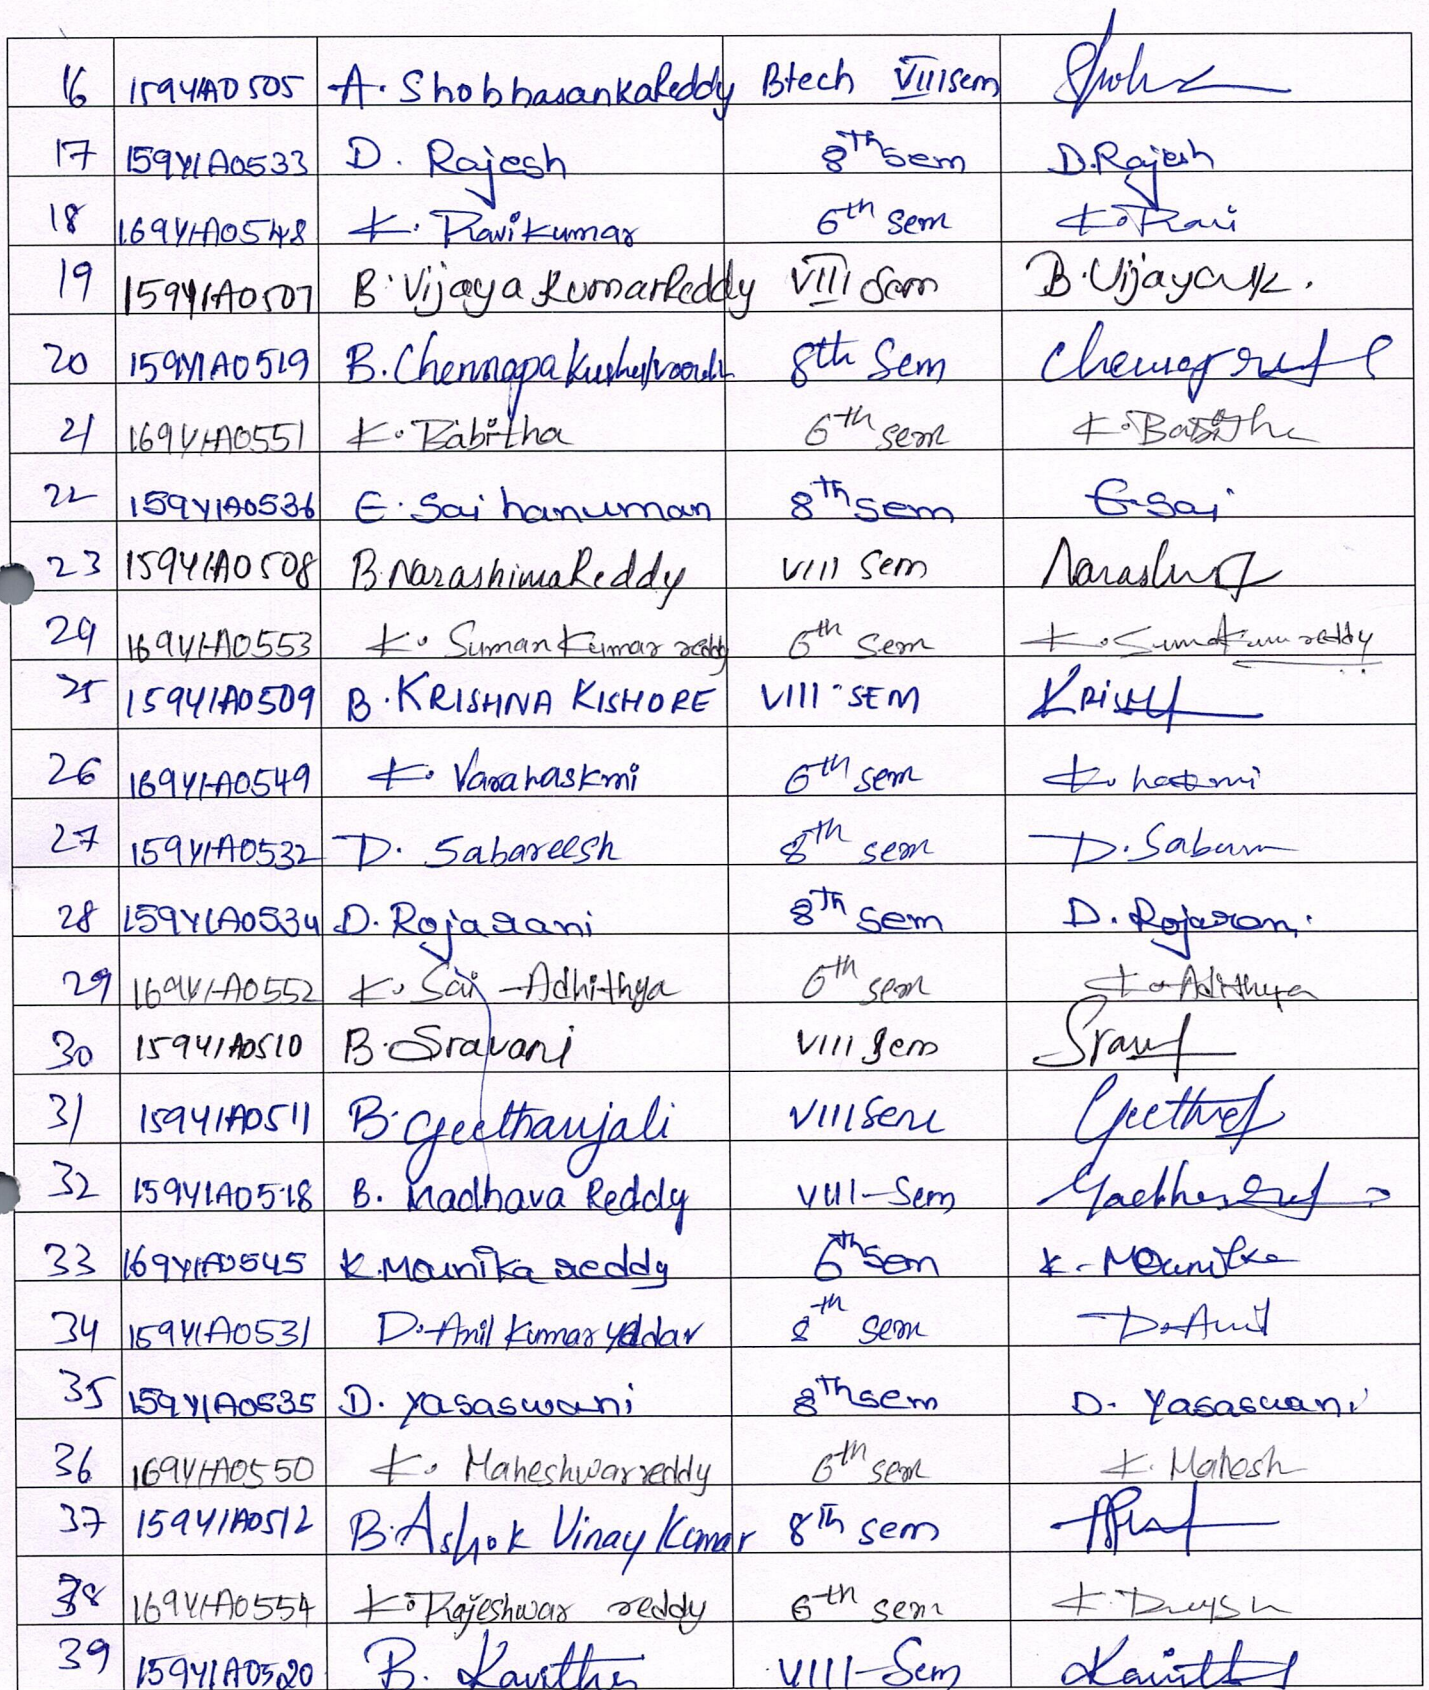 16 159Y1A0505 A. ShobhasankaReddy Btech VIII sem
17 159Y1A0533 D. Rajesh 8Th sem D.Rajesh
18 169Y1A0548 K. Ravi kumar 6th sem K. Ravi
19 159Y1A0507 B. Vijaya KumarReddy VIII Sem B. Vijaya K.
20 159Y1A0519 B. Chennapa 8th Sem
21 169Y1A0551 K. Babitha 6th sem K. Babitha
22 159Y1A0536 E. Sai hanuman 8Th sem E. Sai
23 159Y1A0508 B. NarashimaReddy VIII Sem
24 169Y1A0553 K. Suman Kumar reddy 6th Sem K. Sumankumar reddy
25 159Y1A0509 B. KRISHNA KISHORE VIII-SEM
26 169Y1A0549 K. Varahaskmi 6th sem K.
27 159Y1A0532 D. Sabareesh 8th sem D. Sabar
28 159Y1A0534 D. Rojarani 8Th sem D. Rojarani
29 169Y1A0552 K. Sai -Adhithya 6th sem K. Adithya
30 159Y1A0510 B. Sravani VIII sem
31 159Y1A0511 B. Geethanjali VIII Sem
32 159Y1A0518 B. Madhava Reddy VIII-Sem
33 169Y1A0545 K. Mounika reddy 6th sem K. Mounika
34 159Y1A0531 D. Anil Kumar Yadav 8th sem D. Anil
35 159Y1A0535 D. Yasaswani 8Th sem D. Yasaswani
36 169Y1A0550 K. Maheshwar reddy 6th sem K. Mahesh
37 159Y1A0512 B. Ashok Vinay Kumar 8th sem
38 169Y1A0554 K. Rajeshwar reddy 6th sem K.
39 159Y1A0520 B. Kavitha VIII-Sem